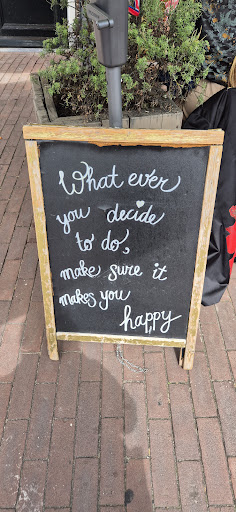 What ever
you decide
to do,
make sure it
makes you
happy